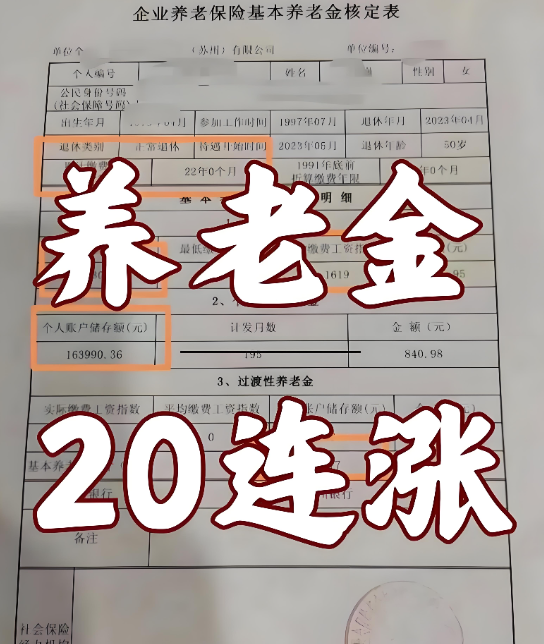 企业养老保险基本养老金核定表
单位 (苏州)有限公司 单位编号:
个人编号 姓名 性别 女
公民身份号码
(社会保障号码)
出生年月 04月 参加工作时间 1997年07月 退休年月 2023年04月
退休类别 正常退休 待遇开始时间 2023年05月 退休年龄 50岁
22年0个月 1991年底前
折算缴费年限 年0个月
基本 明细
养老金
最低缴 缴费工资指 (元)
1619 95
2、 金
个人账户储存额(元) 计发月数 金额(元)
163990.36 195 840.98
3、过渡性养老金
实际缴费工资指数 平均缴费工资指数 账户储存额(元)
0
20连涨
基本养老 7
银行 银行
备注
社会保险